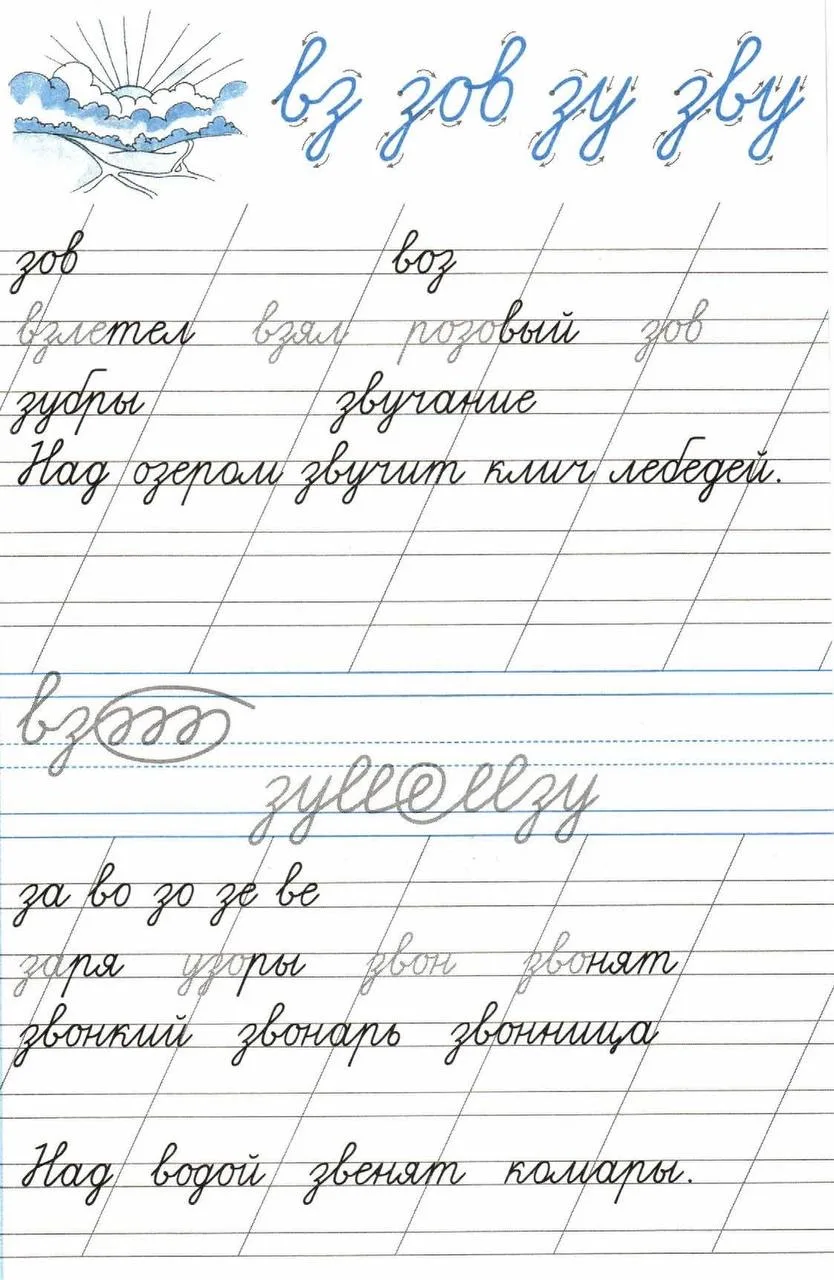 вз зов зу зву
зов воз
взлетел взял розовый зов
зубры звучание
Над озером звучит клич лебедей.
вз
зу зу
за во зо зе ве
заря узоры звон звонят
звонкий звонарь звонница
Над водой звенят комары.